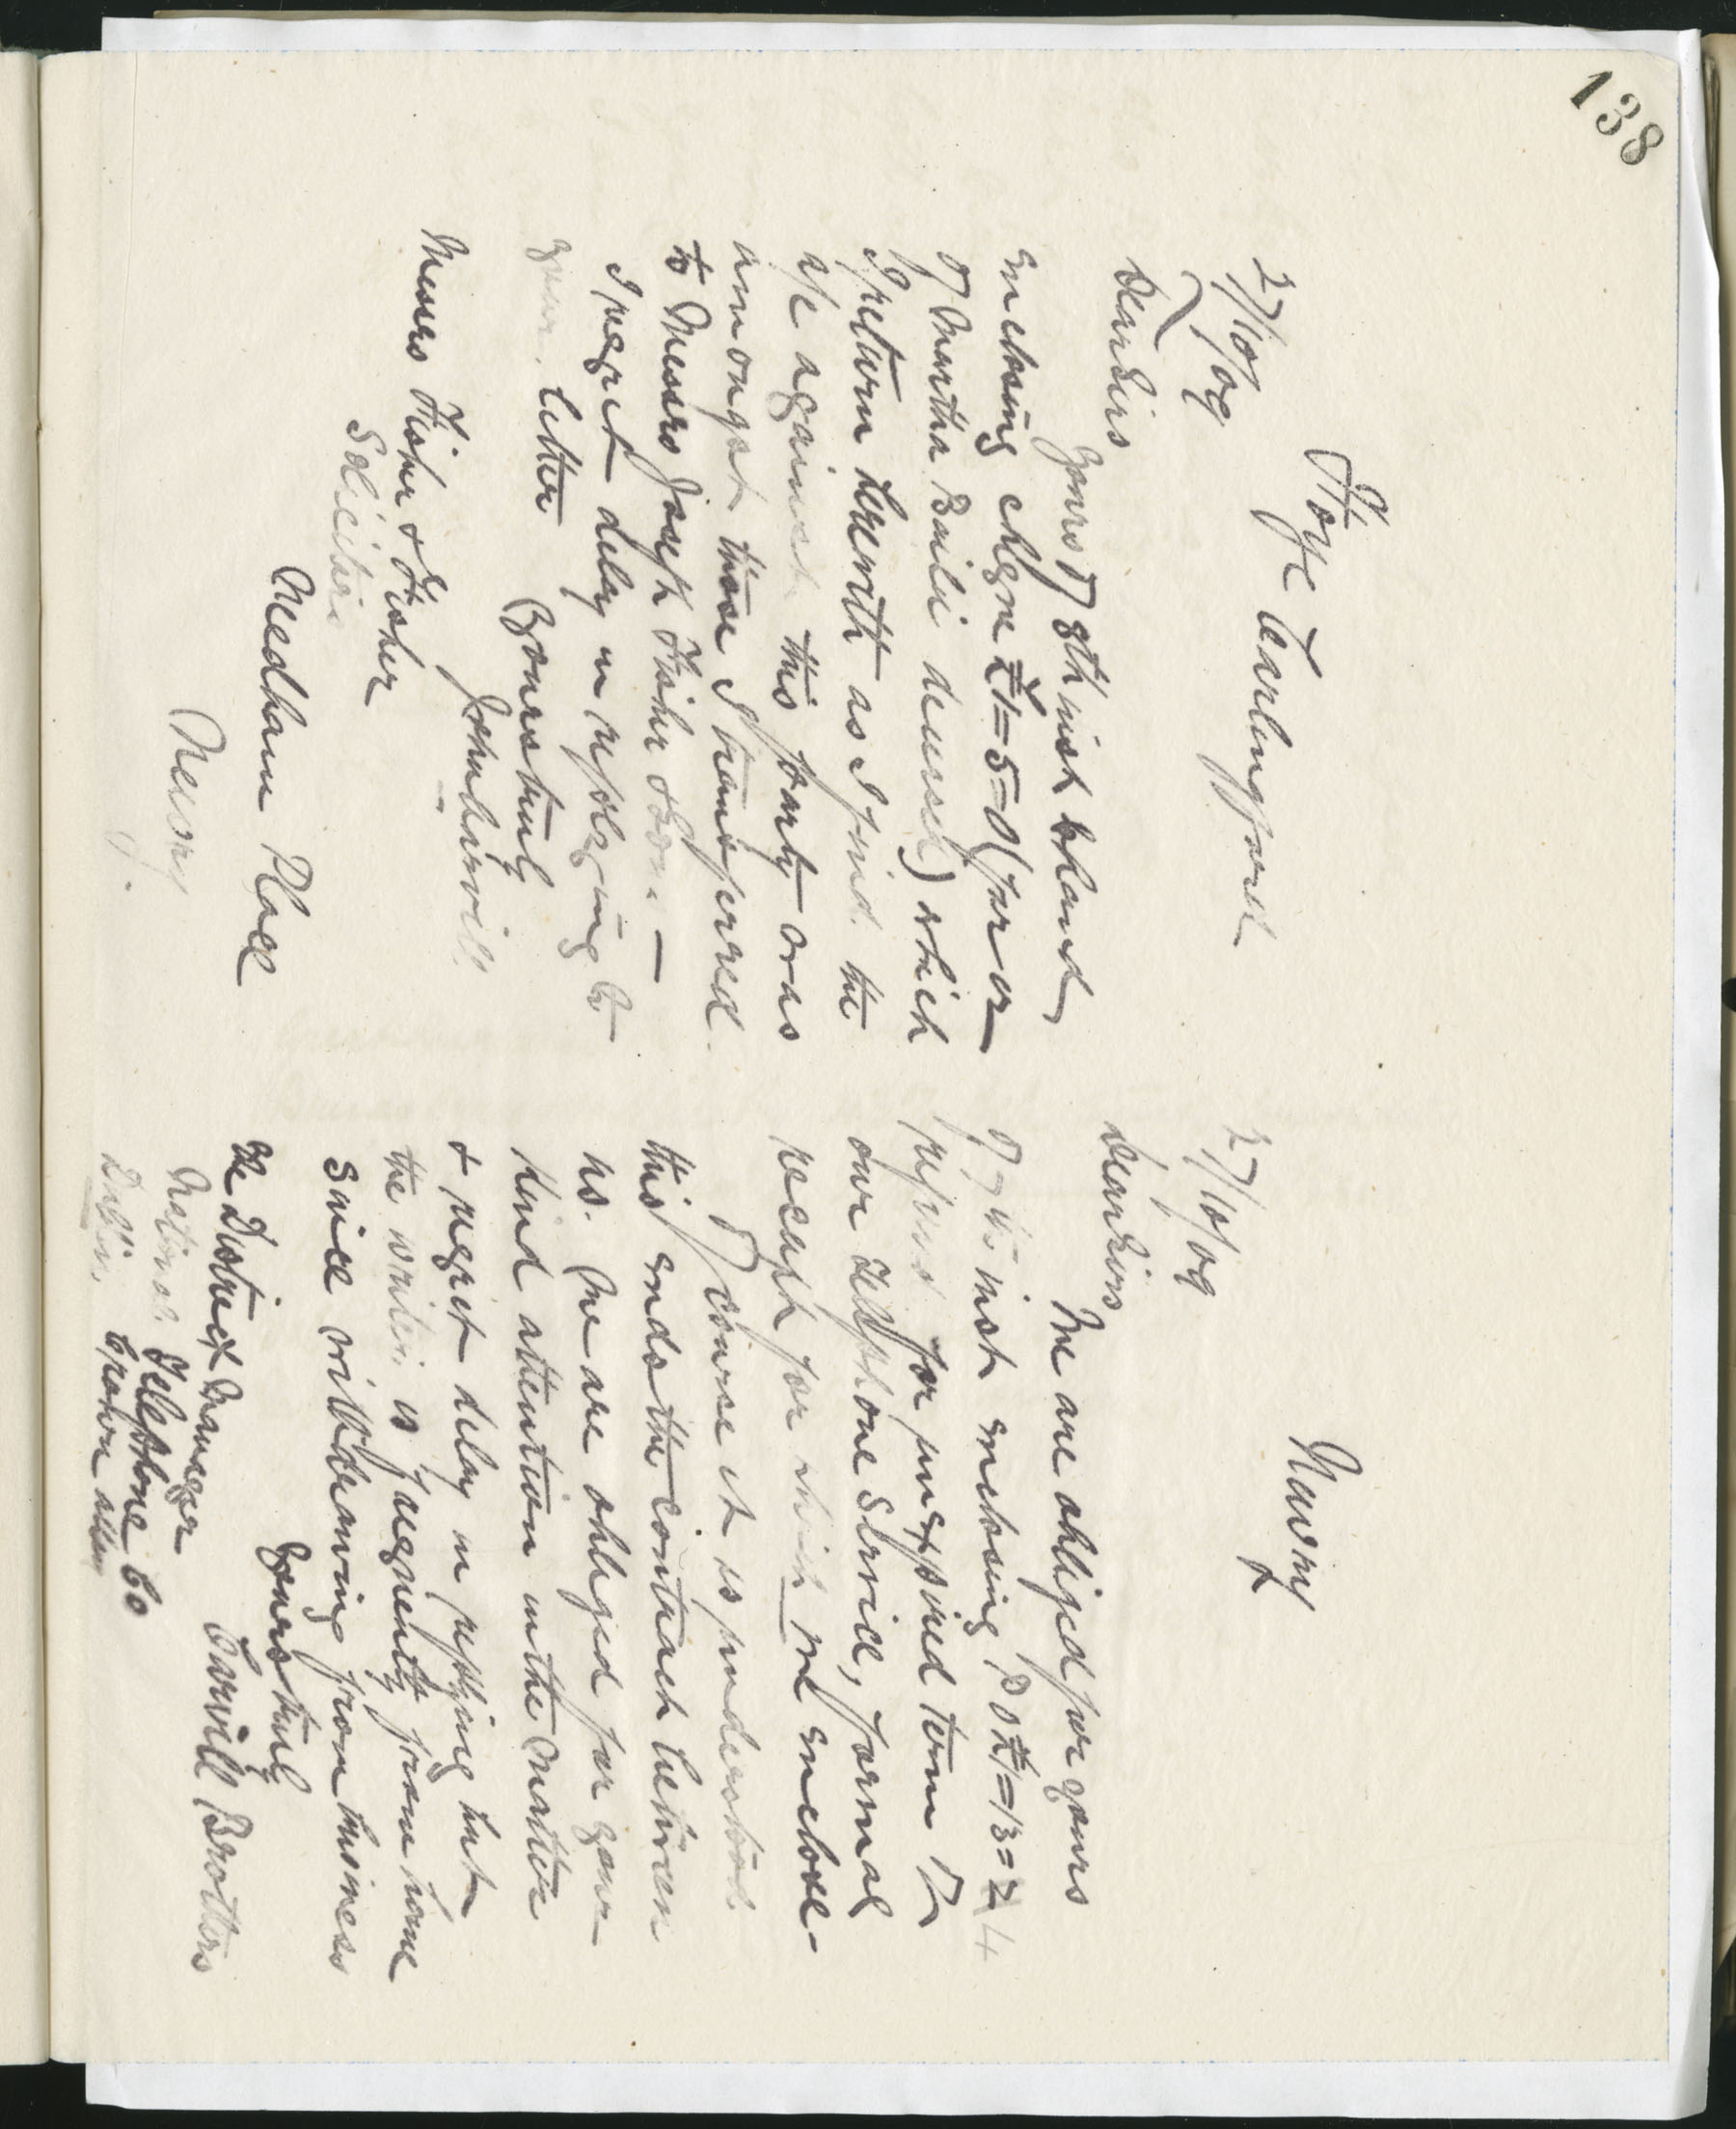 138
Ffoye Carlingford
27/10/09
Dear Sirs
Yours of 8th inst to hand
enclosing cheque £1=5=0 (for or
of Martha Bailie deceased) which
I return herewith as I find the
a/c against this party was
amongst those I transferred
to Messrs Joseph Fisher & Son. —
I regret delay in replying to
your letter
Yours truly
John
Messrs Fisher & Fisher
Solicitors
Needham Place
Newry
Newry
27/10/09
Dear Sirs
We are obliged for yours
of 7th inst enclosing P.O £1=13=4
refund for unexpired term of
our Telephone Service, formal
receipt for which we enclose -
Of course it is understood
this ends the contract between
us. We are obliged for your
kind attention in the matter
& regret delay in replying but
the writer is frequently from home
since withdrawing from business
Yours truly
Farvill Brothers
The District Manager
National Telephone Co
Crown Alley
Dublin